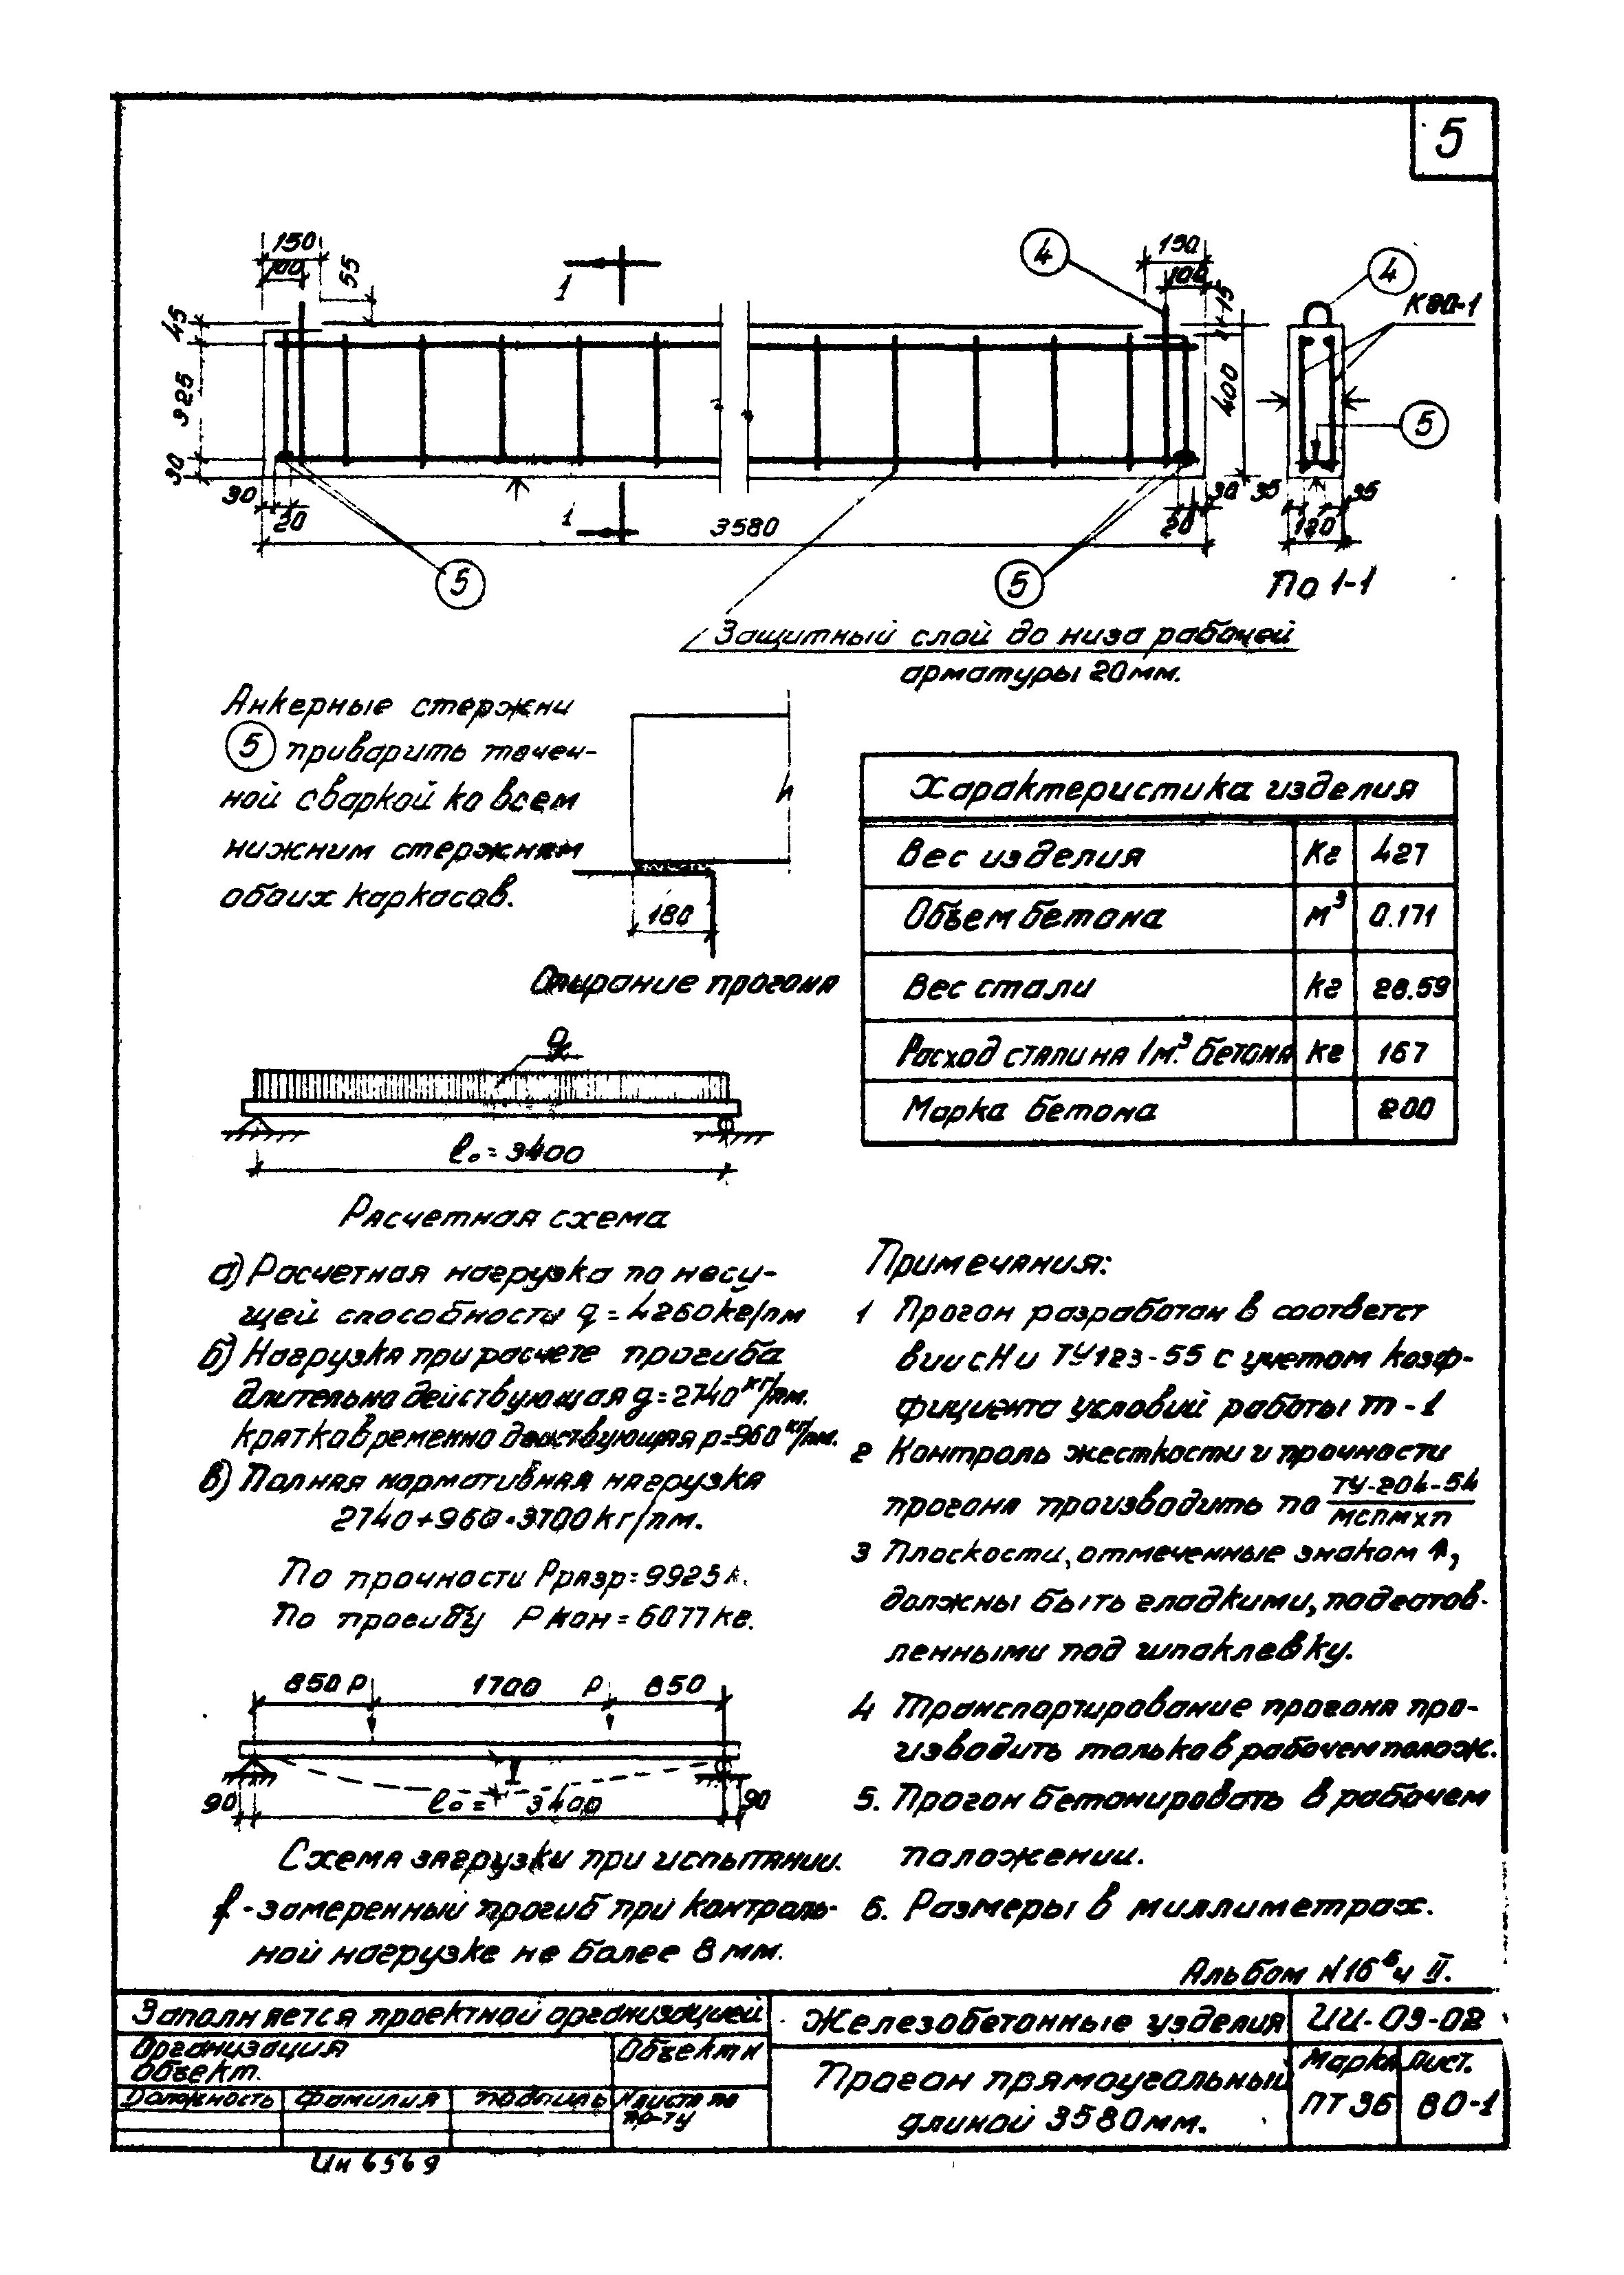 5
150
100
55
1
4
150
100
15
4
К80-1
45
325
30
400
5
30
20
1
3580
20
30
35
35
120
5
5
По 1-1
Защитный слой до низа рабочей
арматуры 20мм.
Анкерные стержни
5 приварить точеч-
ной сваркой ко всем
нижним стержням
обоих каркасов.
h
180
Опирание прогона
Характеристика изделия
Вес изделия кг 427
Объем бетона м³ 0.171
Вес стали кг 28.59
Расход стали на 1м³ бетона кг 167
Марка бетона 200
q
l₀=3400
Расчетная схема
а) Расчетная нагрузка по несу-
щей способности q=4260кг/пм
б) Нагрузка при расчете прогиба
длительно действующая g=2740кг/пм.
кратковременно действующая p=960кг/пм.
в) Полная нормативная нагрузка
2740+960=3700кг/пм.
По прочности Рразр=9925к.
По прогибу Ркон=6077кг.
850 Р 1700 Р 850
90 l₀= 3400 90
Схема загрузки при испытании.
f-замеренный прогиб при контроль-
ной нагрузке не более 8мм.
Примечания:
1 Прогон разработан в соответст
вии с Н и ТУ123-55 с учетом коэф-
фициента условий работы m-1
2 Контроль жесткости и прочности
прогона производить по ТУ-204-54
МСПМХП
3 Плоскости, отмеченные знаком ↑,
должны быть гладкими, подготов-
ленными под шпаклевку.
4 Транспортирование прогона про-
изводить только в рабочем полож.
5. Прогон бетонировать в рабочем
положении.
6. Размеры в миллиметрах.
Альбом N16б ч II.
Заполняется проектной организацией
Организация
Объект N
Объект.
Должность Фамилия Подпись N листа по
по-ту
Железобетонные изделия
ИИ-03-02
Прогон прямоугольный
длиной 3580мм.
Марка
ПТ 36
Лист.
80-1
Ин 6569